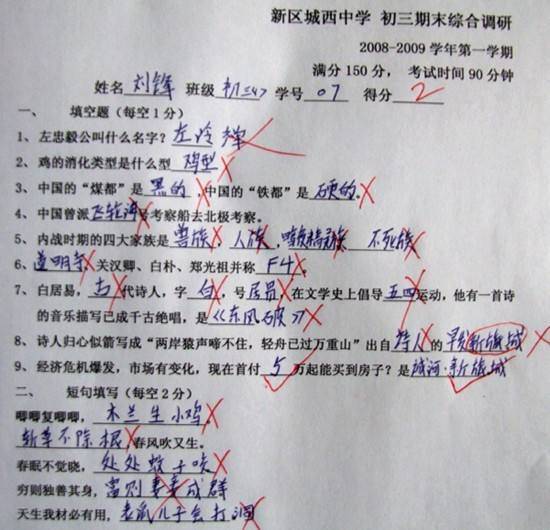 新区城西中学 初三期末综合调研
2008-2009 学年第一学期
满分 150 分， 考试时间 90 分钟
姓名 刘锋 班级 初三(7) 学号 07 得分 2
一、 填空题（每空 1 分）
1、左忠毅公叫什么名字？左冷禅
2、鸡的消化类型是什么型 鸡型
3、中国的“煤都”是 黑的 ,中国的“铁都”是 硬的.
4、中国曾派飞轮海号考察船去北极考察。
5、内战时期的四大家族是 兽族 、人族 、暗夜精灵族 不死族
6、道明寺、关汉卿、白朴、郑光祖并称 F4 。
7、白居易，古代诗人，字 白 ，号居易，在文学史上倡导 五四运动，他有一首诗
的音乐描写已成千古绝唱，是《东风破》
8、诗人归心似箭写成“两岸猿声啼不住，轻舟已过万重山”出自 诗人 的 早发新旅城
9、经济危机爆发，市场有变化，现在首付 5 万起能买到房子？是 城河·新旅城
二、 短句填写（每空 2 分）
唧唧复唧唧， 木兰生小鸡
斩草不除根，春风吹又生。
春眠不觉晓， 处处蚊子咬
穷则独善其身， 富则妻妾成群
天生我材必有用， 老鼠儿子会打洞